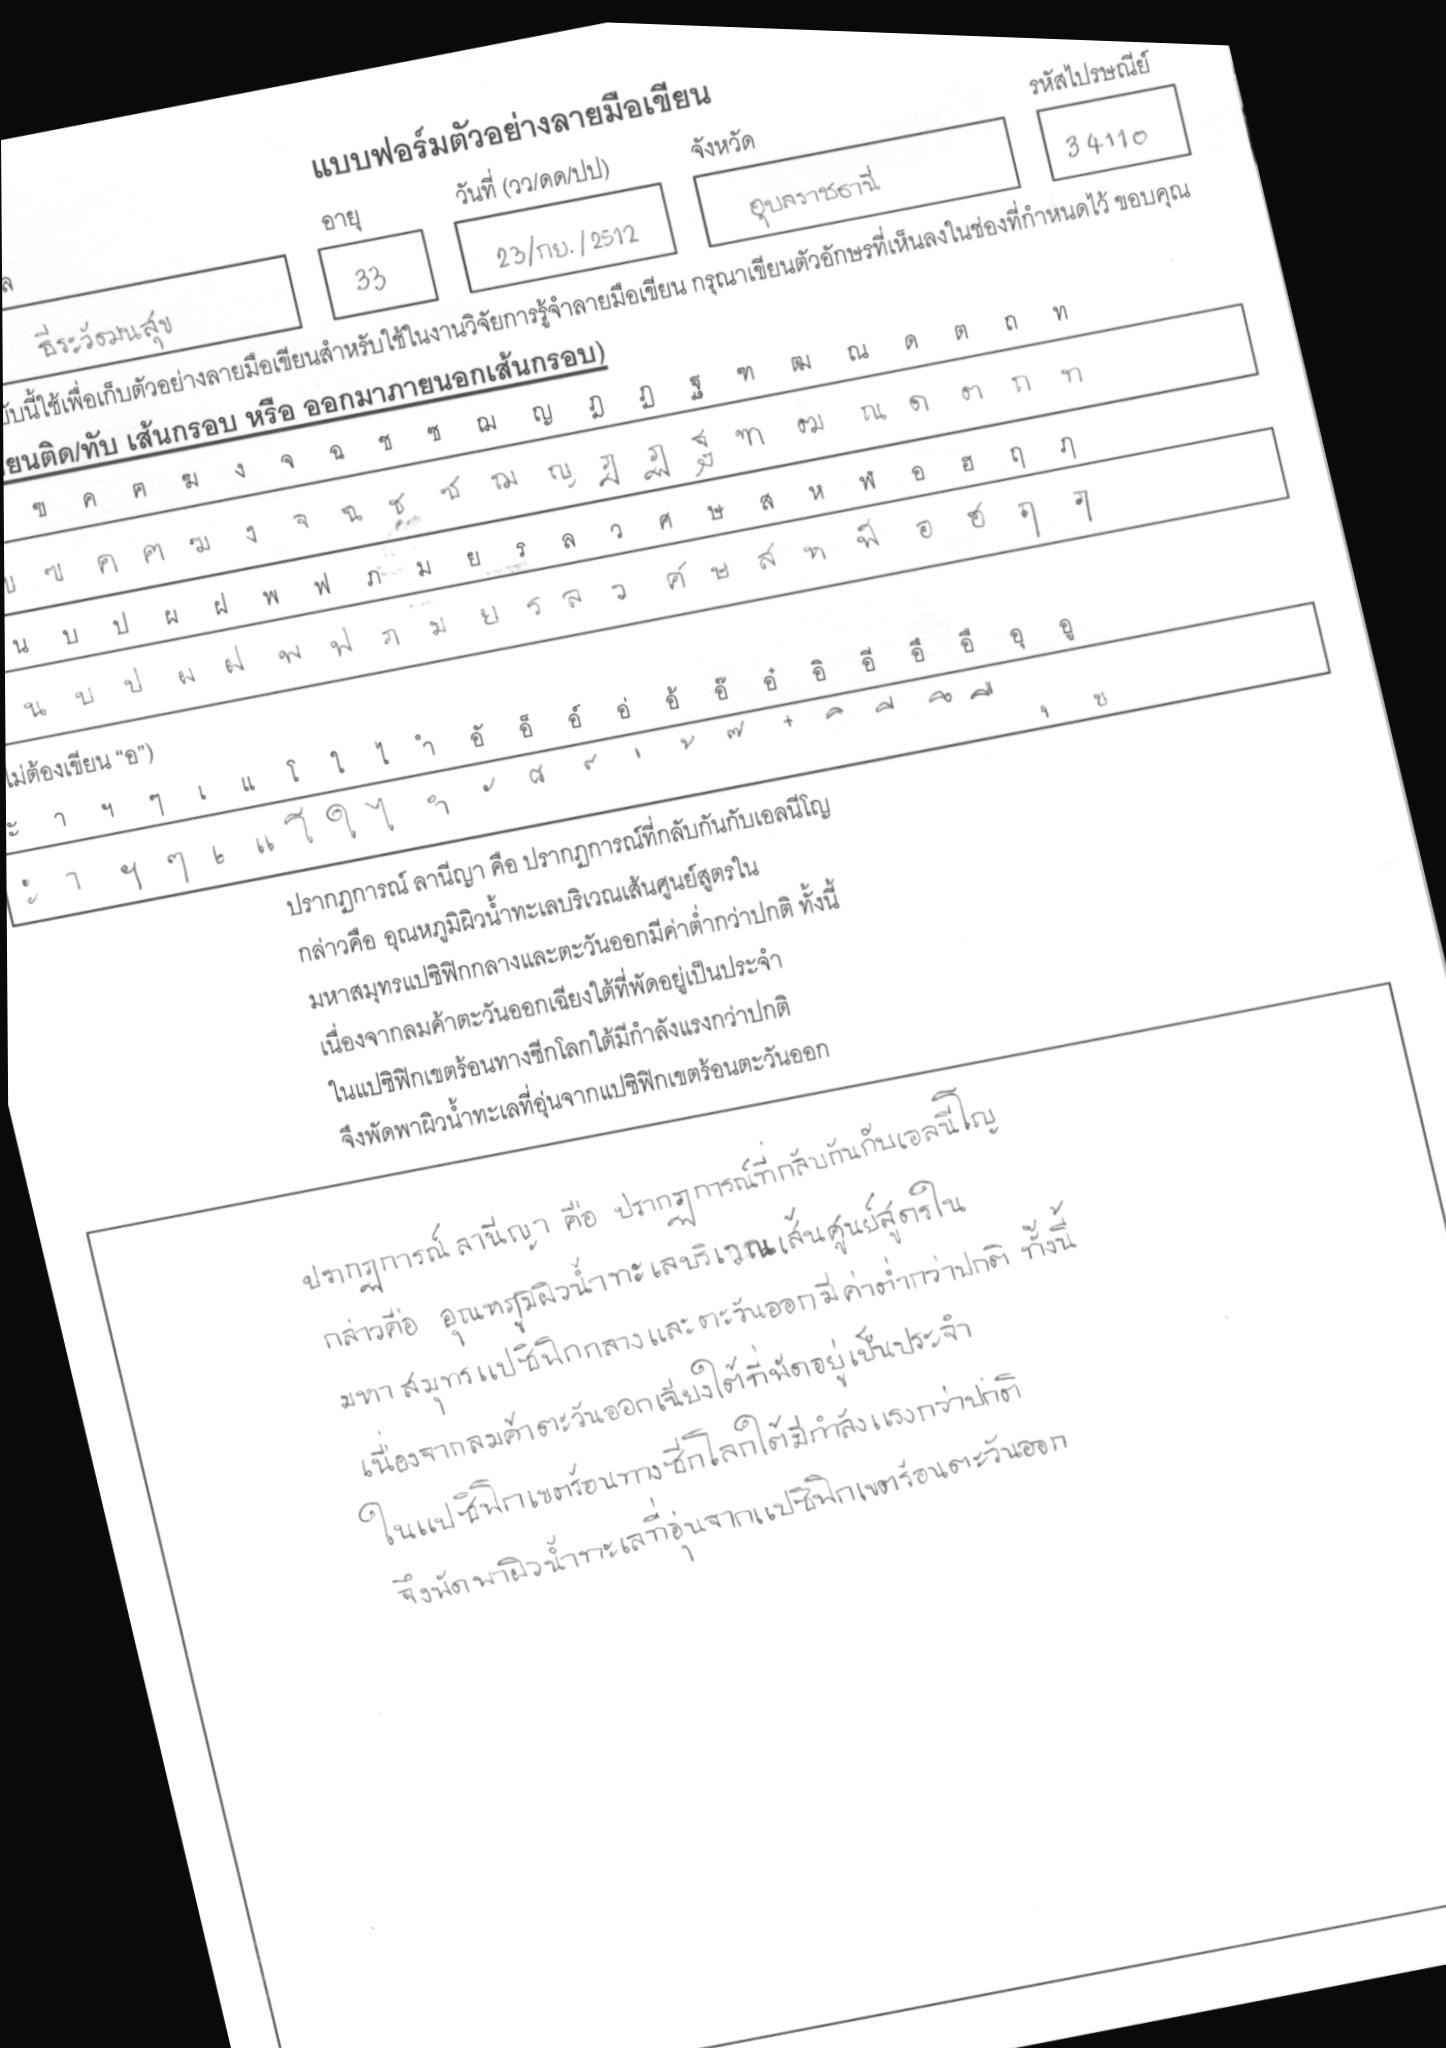 แบบฟอร์มตัวอย่างลายมือเขียน
อายุ วันที่ (วว/ดด/ปป) จังหวัด รหัสไปรษณีย์
33 23/กย./2512 อุบลราชธานี 34110
นี้ใช้เพื่อเก็บตัวอย่างลายมือเขียนสำหรับใช้ในงานวิจัยการรู้จำลายมือเขียน กรุณาเขียนตัวอักษรที่เห็นลงในช่องที่กำหนดไว้ ขอบคุณ
ยนติด/ทับ เส้นกรอบ หรือ ออกมาภายนอกเส้นกรอบ)
ฃ ค ฅ ฆ ง จ ฉ ช ซ ฌ ญ ฎ ฏ ฐ ฑ ฒ ณ ด ต ถ ท
ข ฃ ค ฅ ฆ ง จ ฉ ช ซ ฌ ญ ฎ ฏ ฐ ฑ ฒ ณ ด ต ถ ท
น บ ป ผ ฝ พ ฟ ภ ม ย ร ล ว ศ ษ ส ห ฬ อ ฮ ฤ ฦ
น บ ป ผ ฝ พ ฟ ภ ม ย ร ล ว ศ ษ ส ห ฬ อ ฮ ฤ ฦ
ไม่ต้องเขียน “อ”)
ะ า ฯ ๆ เ แ โ ใ ไ ำ อั อ็ อ์ อ่ อ้ อ๊ อ๋ อิ อี อึ อื อุ อู
ะ า ฯ ๆ เ แ โ ใ ไ ำ ั ็ ์ ่ ้ ๊ ๋ ิ ี ึ ื ุ ู
ปรากฏการณ์ ลานีญา คือ ปรากฏการณ์ที่กลับกันกับเอลนีโญ
กล่าวคือ อุณหภูมิผิวน้ำทะเลบริเวณเส้นศูนย์สูตรใน
มหาสมุทรแปซิฟิกกลางและตะวันออกมีค่าต่ำกว่าปกติ ทั้งนี้
เนื่องจากลมค้าตะวันออกเฉียงใต้ที่พัดอยู่เป็นประจำ
ในแปซิฟิกเขตร้อนทางซีกโลกใต้มีกำลังแรงกว่าปกติ
จึงพัดพาผิวน้ำทะเลที่อุ่นจากแปซิฟิกเขตร้อนตะวันออก
ปรากฏการณ์ ลานีญา คือ ปรากฏการณ์ที่กลับกันกับเอลนีโญ
กล่าวคือ อุณหภูมิผิวน้ำทะเลบริเวณเส้นศูนย์สูตรใน
มหาสมุทรแปซิฟิกกลางและตะวันออกมีค่าต่ำกว่าปกติ ทั้งนี้
เนื่องจากลมค้าตะวันออกเฉียงใต้ที่พัดอยู่เป็นประจำ
ในแปซิฟิกเขตร้อนทางซีกโลกใต้มีกำลังแรงกว่าปกติ
จึงพัดพาผิวน้ำทะเลที่อุ่นจากแปซิฟิกเขตร้อนตะวันออก